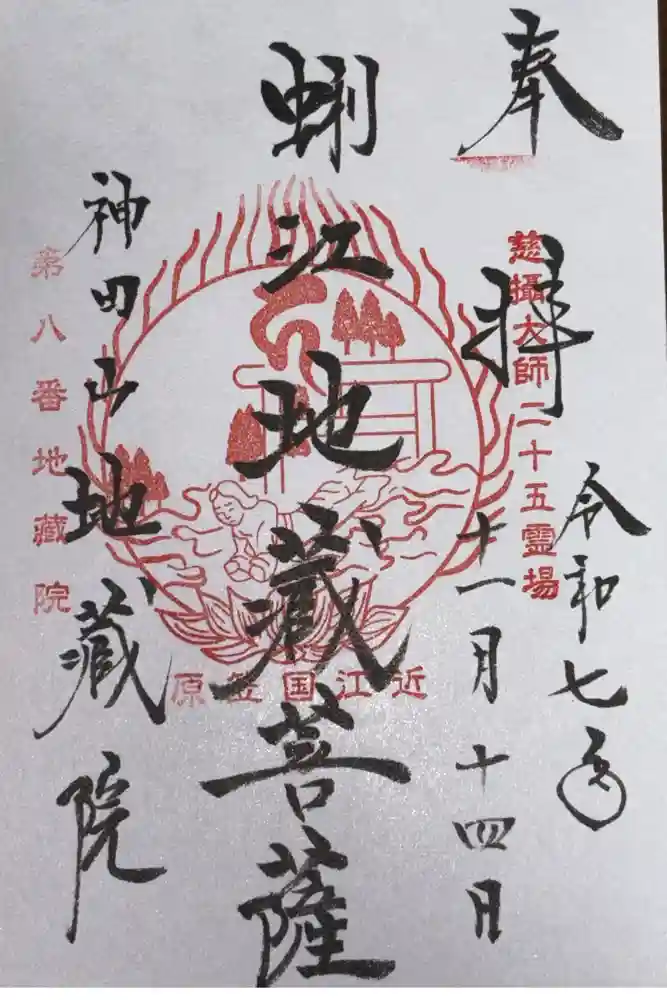 奉拝
慈攝大師二十五霊場
令和七年
十一月十四日
蜊江地蔵菩薩
近江国笠原
神田山地蔵院
第八番地藏院